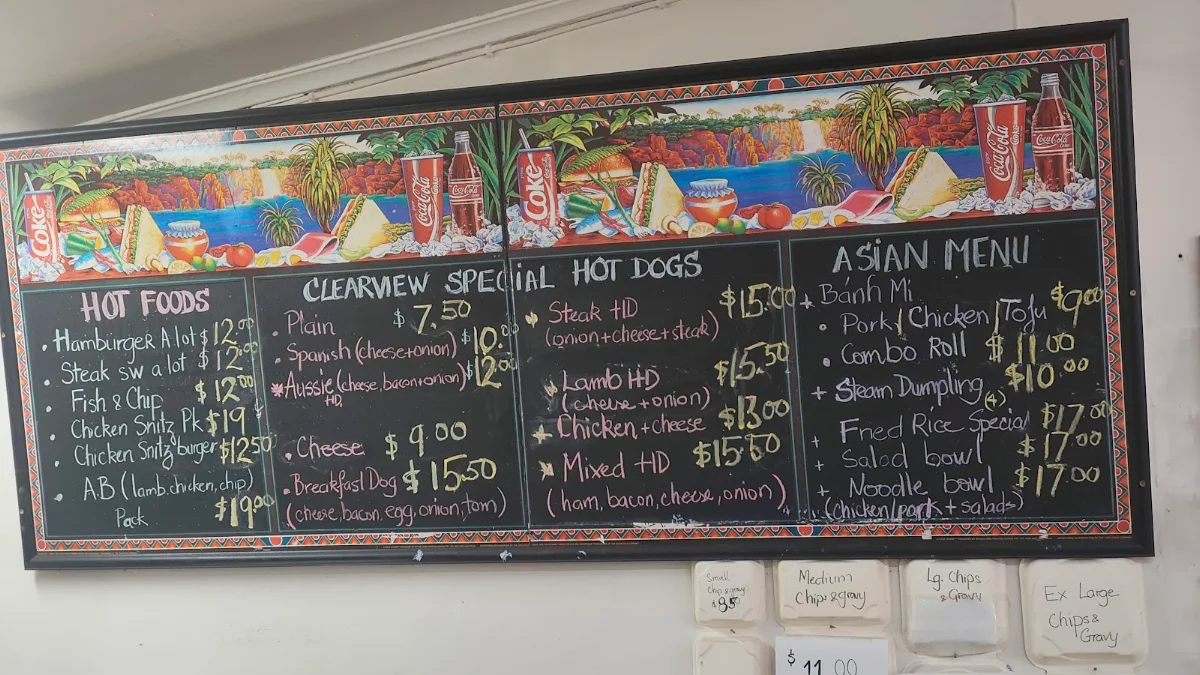 COKE
Coca-Cola
Coca-Cola
COKE
Coca-Cola
Coke
Coca-Cola
HOT FOODS
. Hamburger A lot $12.00
. Steak sw a lot $12.00
. Fish & Chip $12.00
. Chicken Snitz Pk $19
. Chicken Snitz burger $12.50
. A.B (lamb.chicken,chip)
Pack $19.00
CLEARVIEW SPECIAL HOT DOGS
. Plain $7.50
. Spanish (cheese+onion) $10.00
* Aussie (cheese, bacon+onion) $12.00
HD,
. Cheese $9.00
. Breakfast Dog $15.50
(cheese, bacon, egg, onion, tom)
Steak HD $15.00
(onion+cheese+steak)
Lamb HD $15.50
(cheese+onion)
Chicken+cheese $13.00
Mixed HD $15.50
(ham, bacon, cheese, onion)
ASIAN MENU
+ Bánh Mi
Pork/Chicken/Tofu $9.00
Combo Roll $11.00
+ Steam Dumpling (4) $10.00
+ Fried Rice Special $17.00
+ Salad bowl $17.00
+ Noodle bowl $17.00
(chicken/pork + salads)
Small
Chip & gravy
Medium
Chips & gravy
Lg. Chips
& Gravy
Ex Large
Chips &
Gravy
$11.00